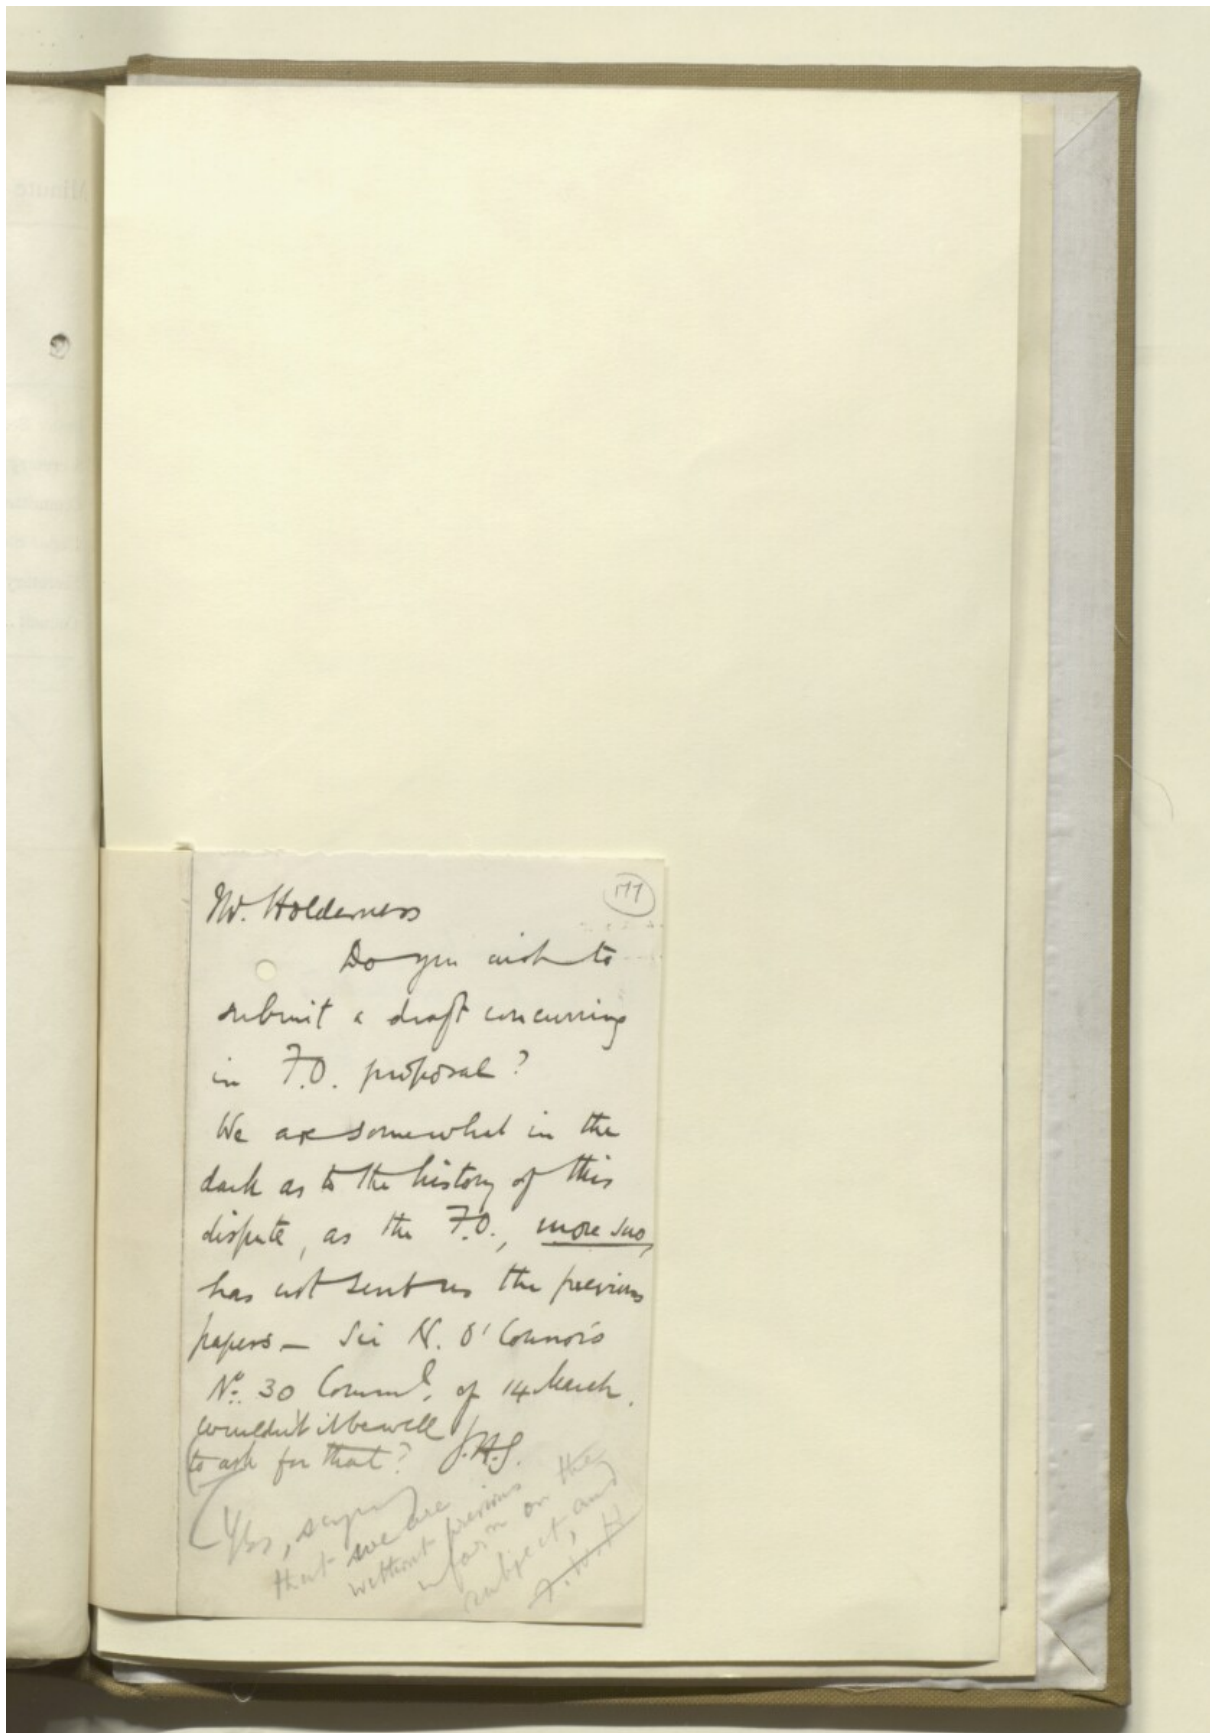 177
Mr. Holderness
Do you wish to
submit a draft concurring
in F.O. proposal?
We are somewhat in the
dark as to the history of this
dispute, as the F.O., more suo,
has not sent us the previous
papers — Sir N. O'Conor's
No. 30 Comml. of 14 March.
Wouldn't it be well
to ask for that?
Yes, saying
that we are
without previous
inform on the
subject, and